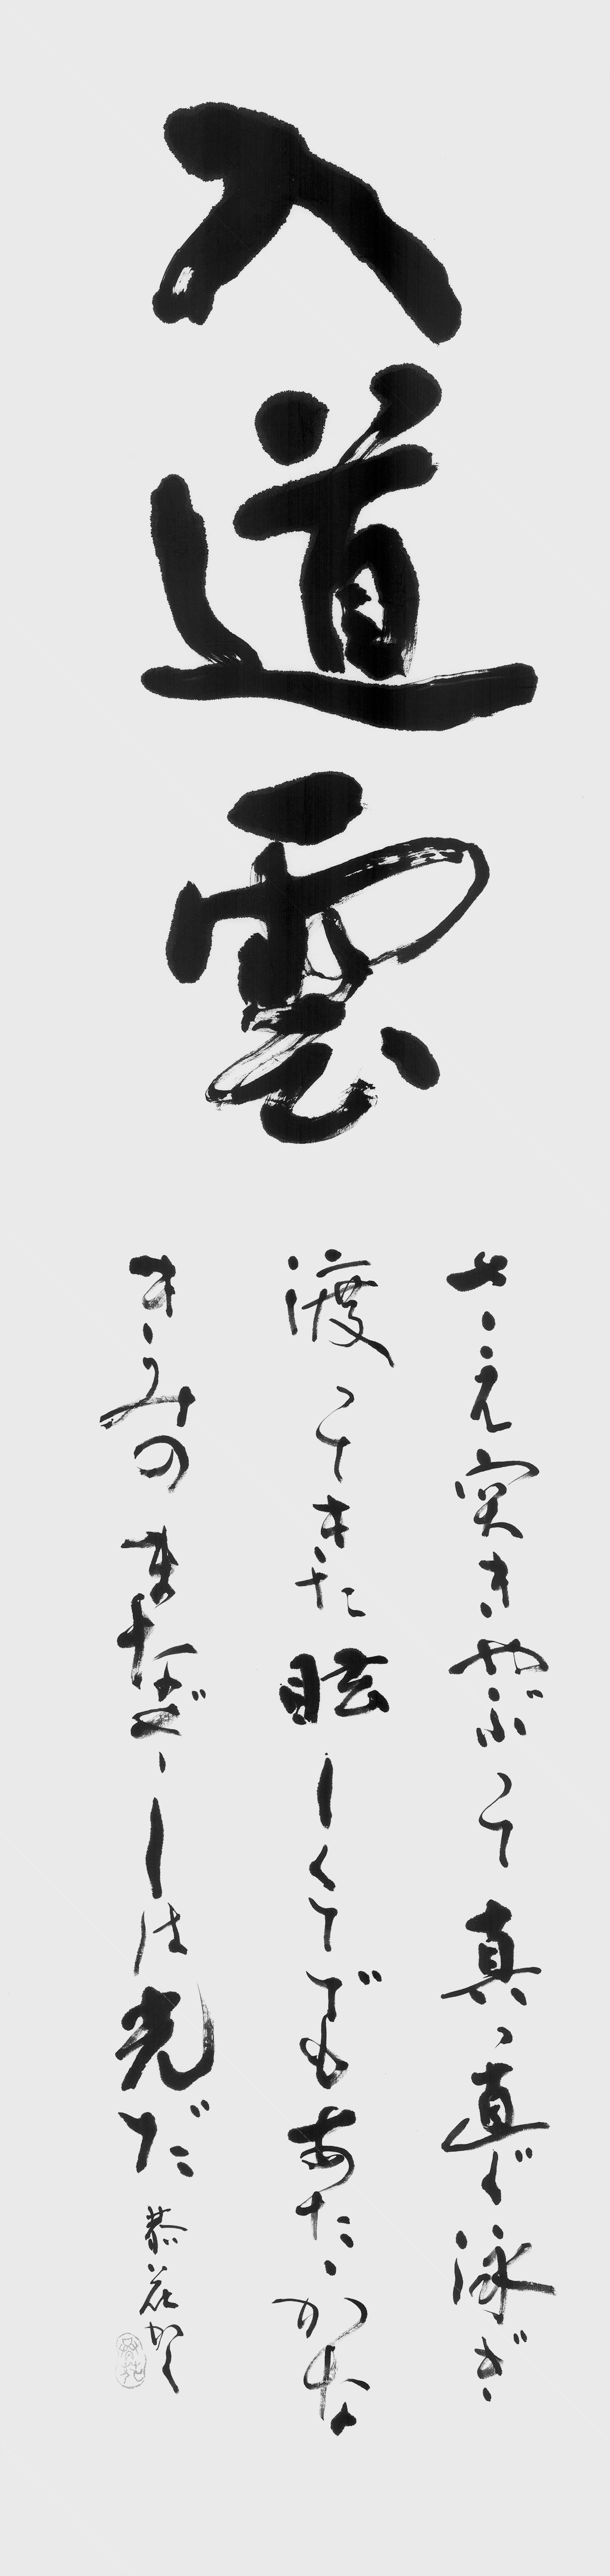 入道雲
さえ突きやぶって真っ直ぐ泳ぎ
渡ってきた眩しくてでもあたゝかな
きみのまなざしは光だ 恭花かく